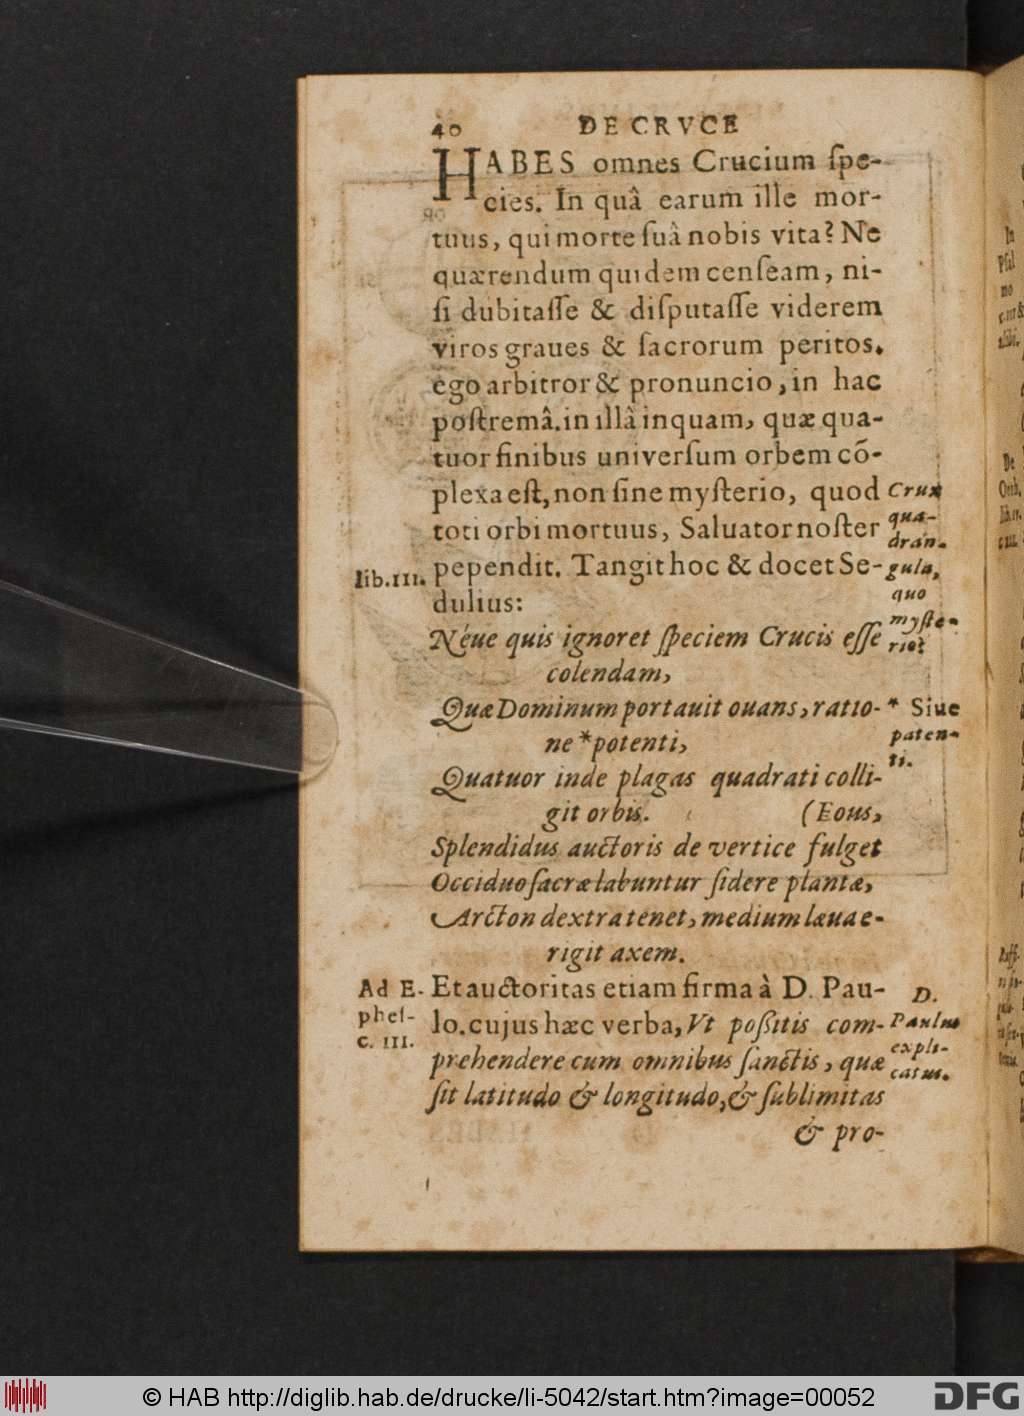 40 DE CRVCE
HABES omnes Crucium ſpe-
cies. In quâ earum ille mor-
tuus, qui morte ſuâ nobis vita? Ne
quærendum quidem cenſeam, ni-
ſi dubitaſſe & diſputaſſe viderem
viros graues & ſacrorum peritos.
ego arbitror & pronuncio, in hac
poſtremâ. in illâ inquam, quæ qua-
tuor finibus univerſum orbem cõ-
plexa eſt, non ſine myſterio, quod
toti orbi mortuus, Saluator noſter
pependit. Tangit hoc & docet Se-
dulius:
Néue quis ignoret ſpeciem Crucis eſſe
colendam,
Quæ Dominum portauit ouans, ratio-
ne *potenti,
Quatuor inde plagas quadrati colli-
git orbis. (Eous,
Splendidus auctoris de vertice fulget
Occiduo ſacræ labuntur ſidere plantæ,
Arcton dextra tenet, medium læua e-
rigit axem.
Et auctoritas etiam firma à D. Pau-
lo. cujus hæc verba, Vt poßitis com-
prehendere cum omnibus ſanctis, quæ
ſit latitudo & longitudo, & ſublimitas
& pro-
Crux
qua-
dran-
gula,
quo
myſte-
rio?
lib. III.
* Siue
paten-
ti.
Ad E-
pheſ-
c. III.
D.
Paulus
expli-
catus.
In
Pſal
mo
De
Orth.
© HAB http://diglib.hab.de/drucke/li-5042/start.htm?image=00052
DFG